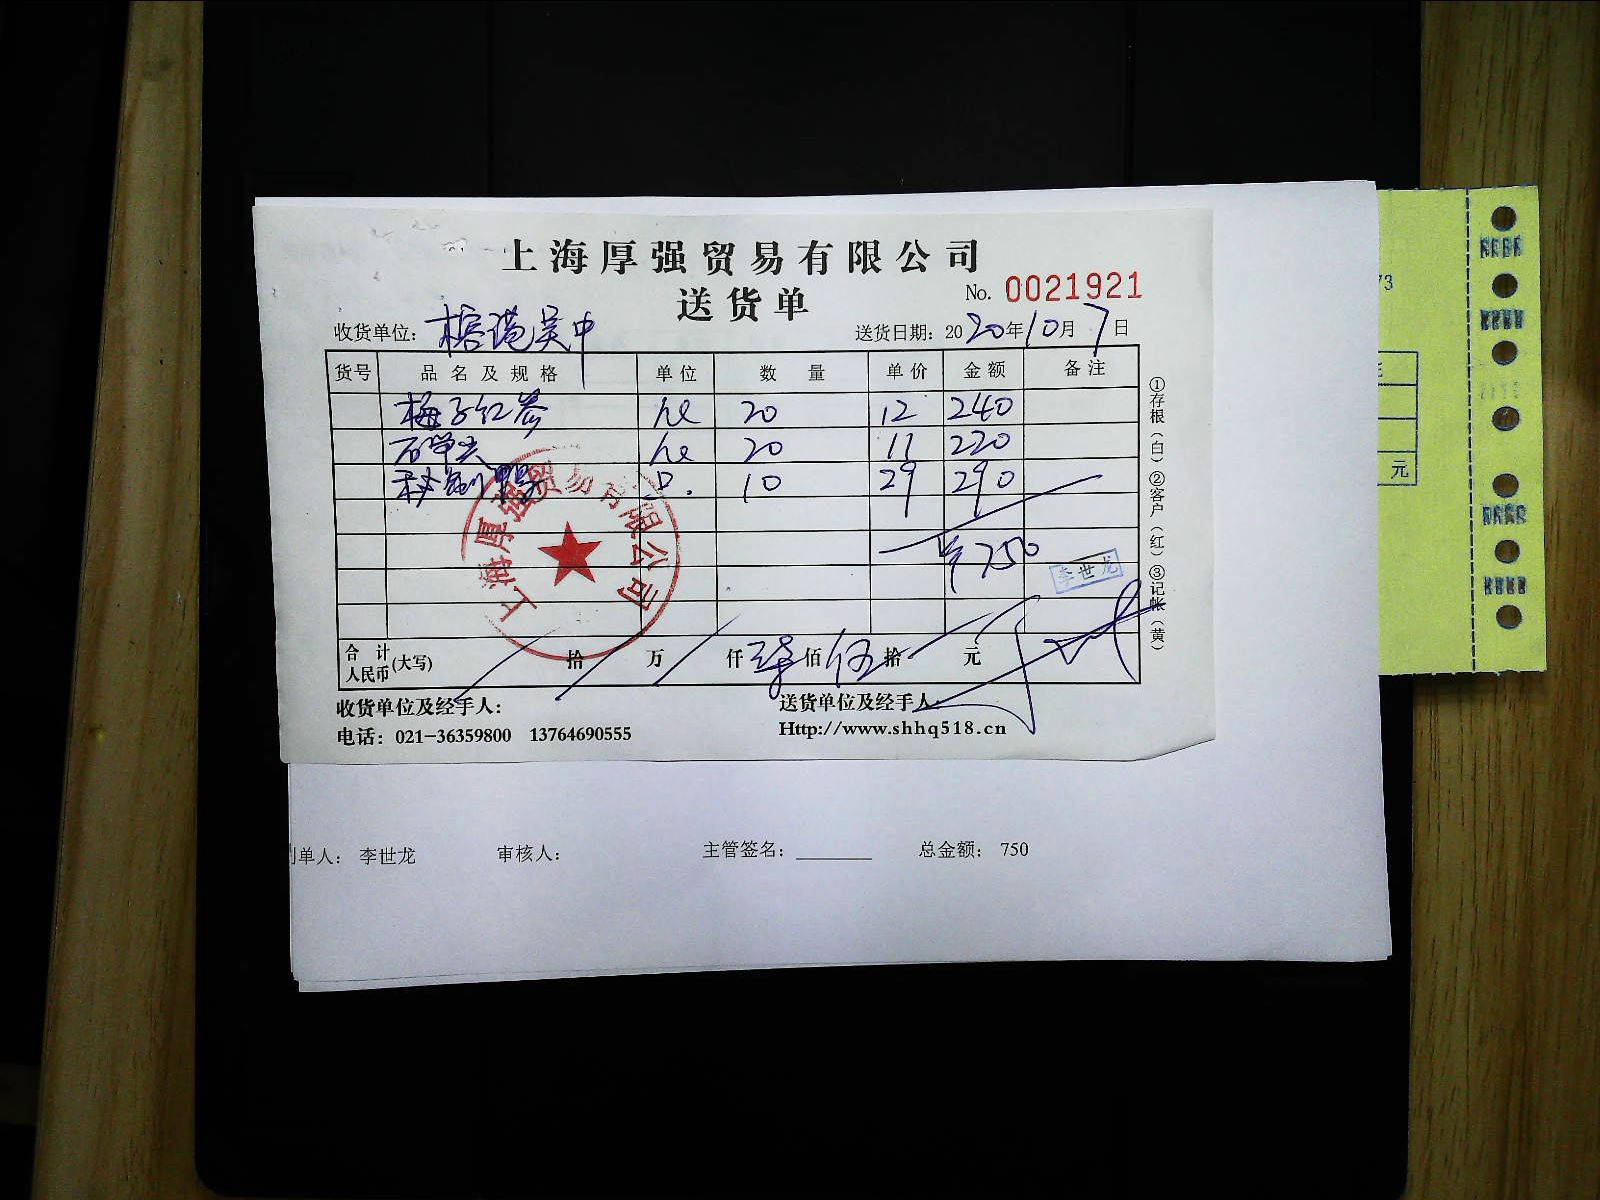 上海厚强贸易有限公司
送货单
No. 0021921
收货单位: 榕港吴中
送货日期: 2020年10月7日
货号 品名及规格 单位 数量 单价 金额 备注
梅子红茶 20 12 240
20 11 220
10 29 290
¥750
李世龙
合计人民币(大写) 拾 万 仟 柒 佰 伍 拾 元
收货单位及经手人:
送货单位及经手人:
电话: 021-36359800 13764690555
Http://www.shhq518.cn
①存根(白) ②客户(红) ③记帐(黄)
上海厚强贸易有限公司
单人: 李世龙 审核人: 主管签名: ________ 总金额: 750
73
元